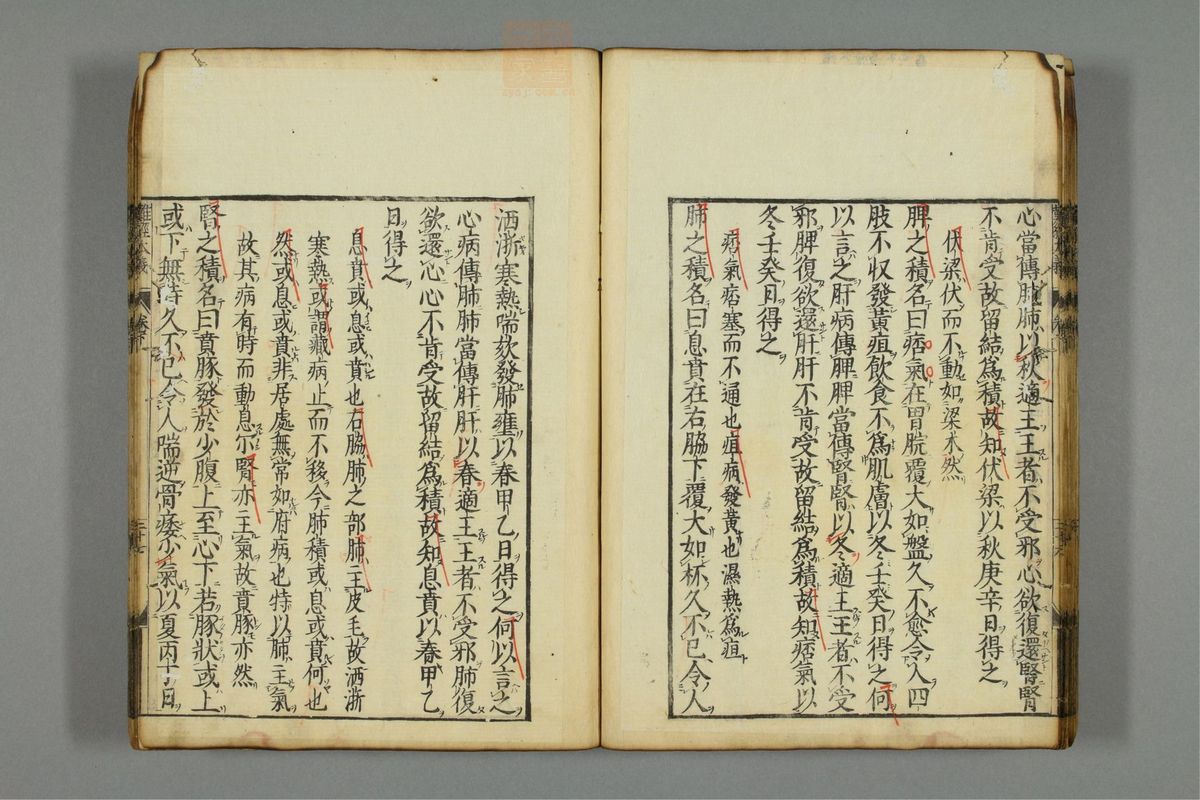 心當傳肺肺以秋適王王者不受邪心欲復還腎腎
不肯受故留結爲積故知伏梁以秋庚辛日得之
伏梁伏而不動如梁木然
脾之積名曰痞氣在胃脘覆大如盤久不愈令人四
肢不収發黃疸飲食不爲肌膚以冬壬癸日得之何
以言之肝病傳脾脾當傳腎腎以冬適王王者不受
邪脾復欲還肝肝不肯受故留結爲積故知痞氣以
冬壬癸日得之
痞氣痞塞而不通也疸病發黃也濕熱爲疸
肺之積名曰息賁在右脇下覆大如杯久不已令人
洒淅寒熱喘欬發肺壅以春甲乙日得之何以言之
心病傳肺肺當傳肝肝以春適王王者不受邪肺復
欲還心心不肯受故留結爲積故知息賁以春甲乙
日得之
息賁或息或賁也右脇肺之部肺主皮毛故洒淅
寒熱或謂藏病止而不移今肺積或息或賁何也
然或息或賁非居處無常如府病也特以肺主氣
故其病有時而動息尓腎亦主氣故賁豚亦然
腎之積名曰賁豚發於少腹上至心下若豚狀或上
或下無時久不已令人喘逆骨痿少氣以夏丙丁日